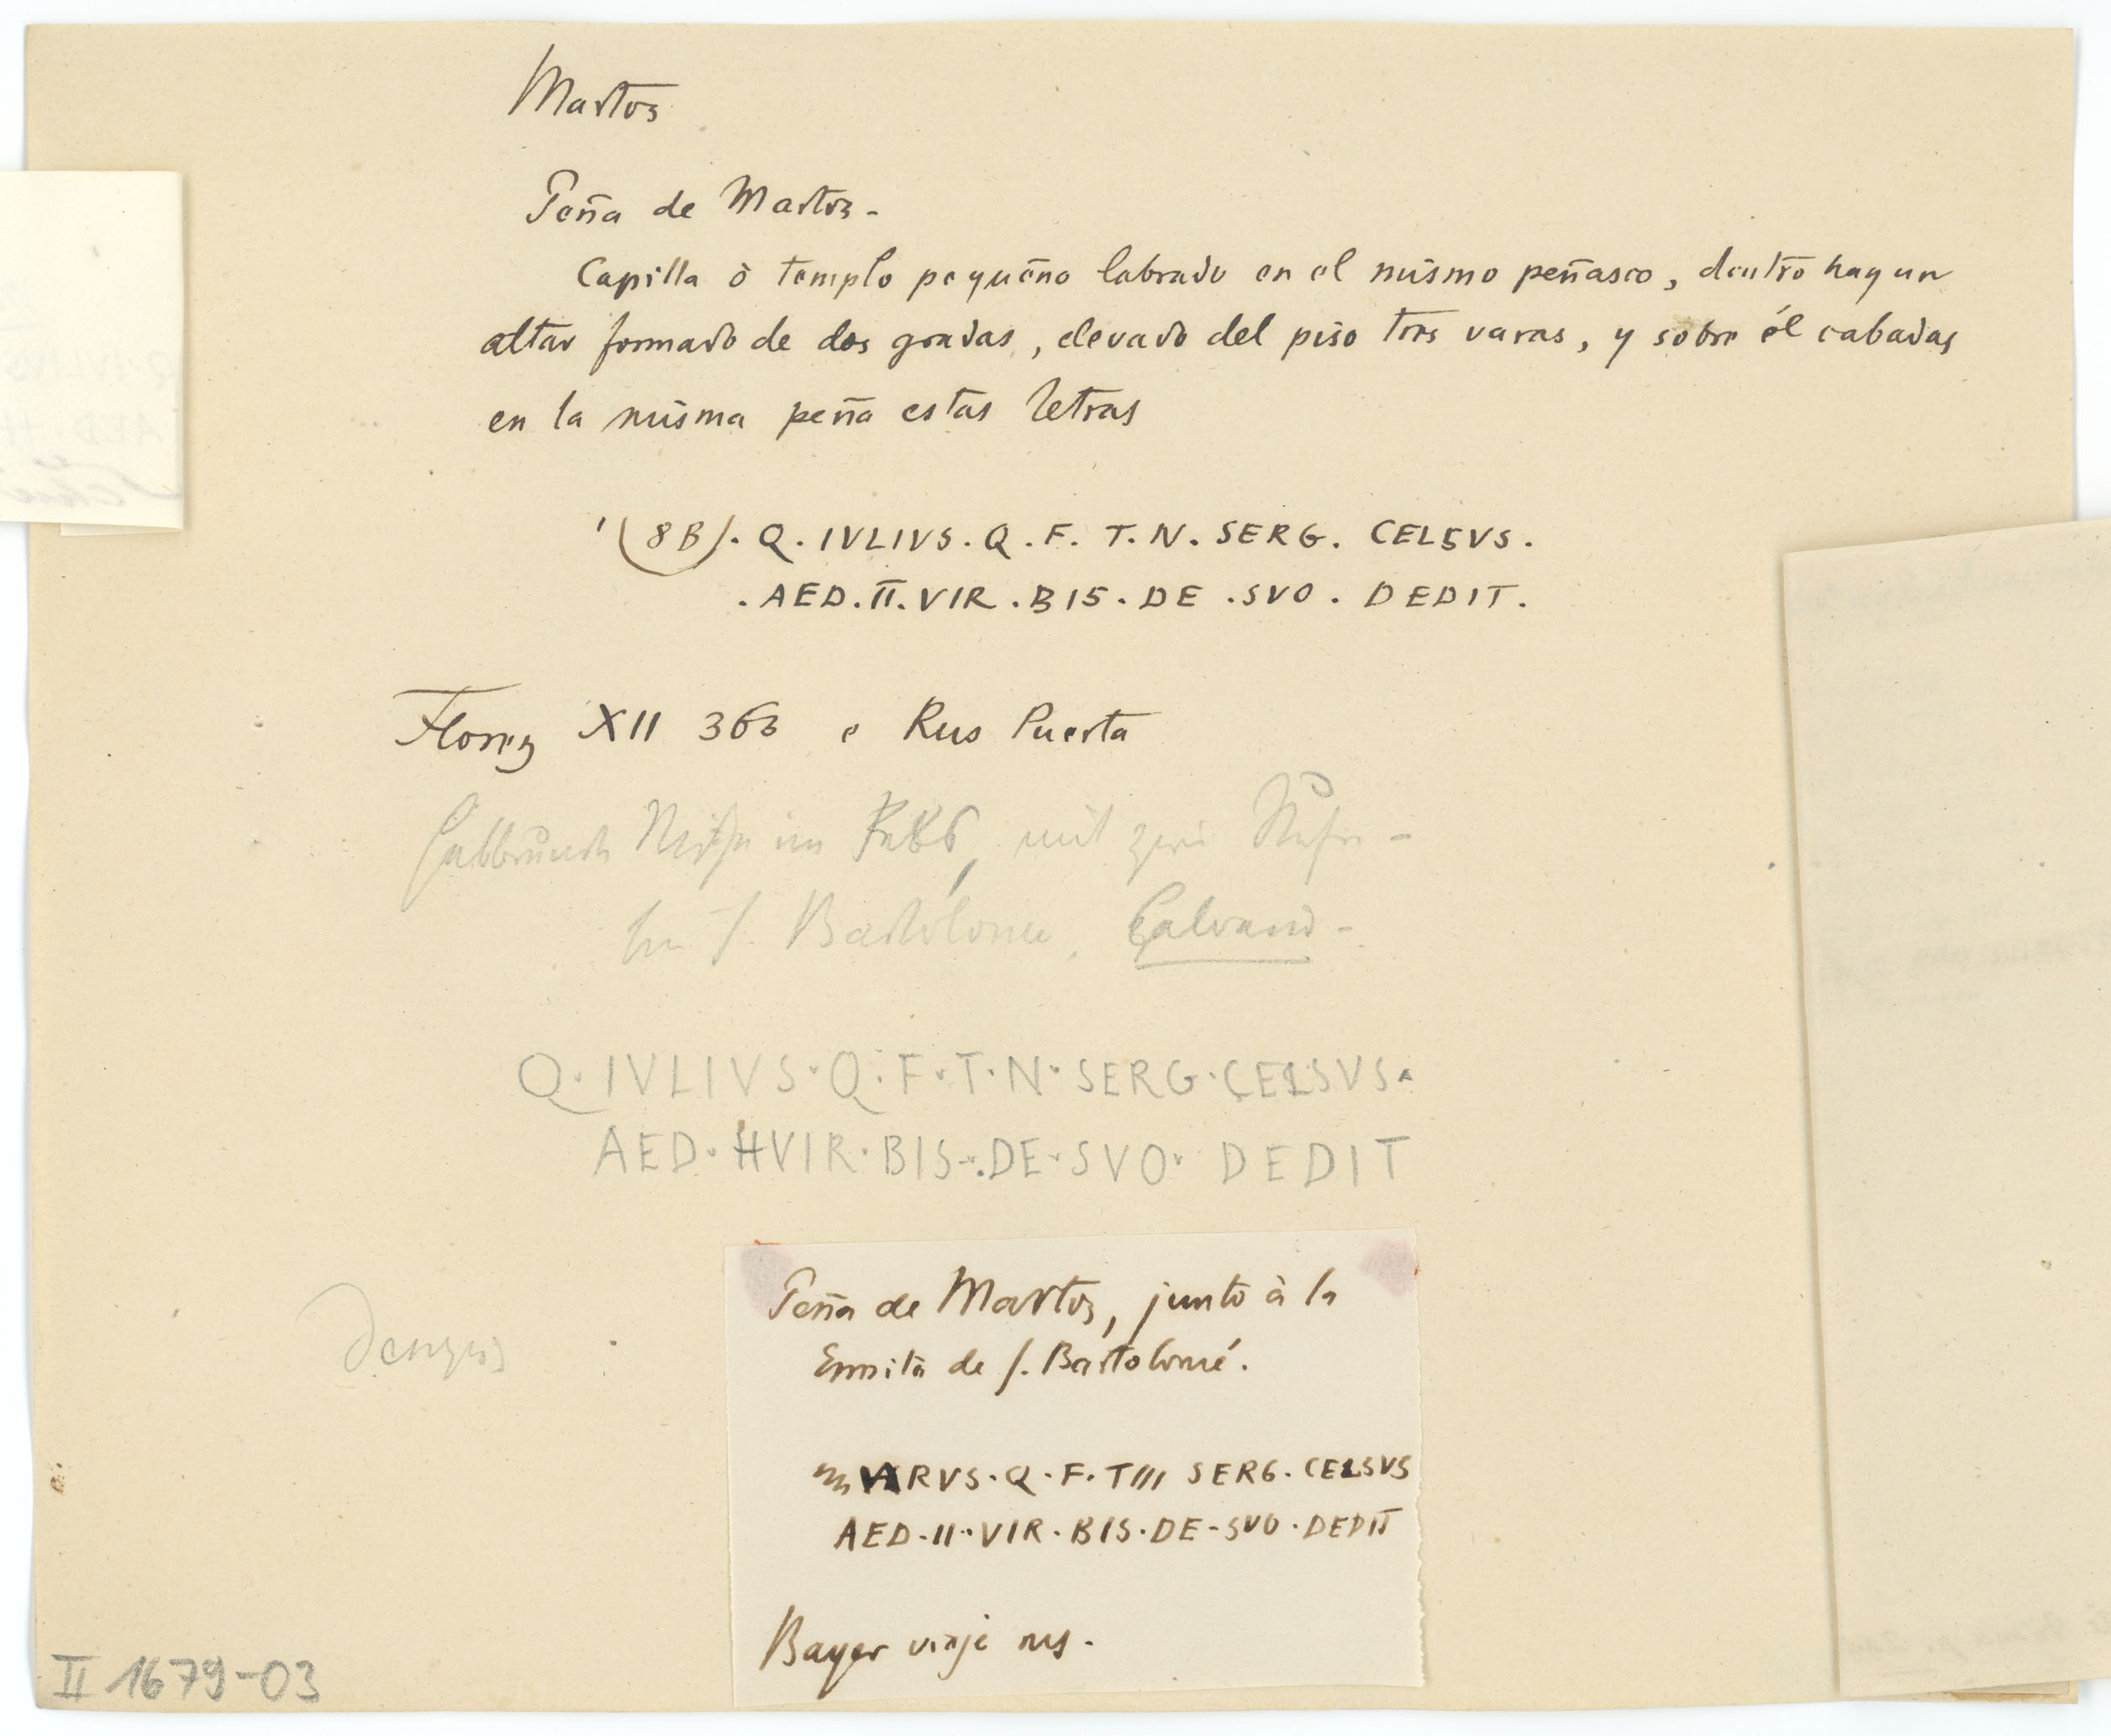 Martos
Peña de Martos-
Capilla ò templo pequeño labrado en el mismo peñasco, dentro hay un
altar formado de dos gradas, elevado del piso tres varas, y sobre él cabadas
en la misma peña estas letras
(8B). Q. IVLIVS. Q. F. T. N. SERG. CELSVS.
. AED. II. VIR. BIS. DE. SVO. DEDIT.
Florez XII 363 e Rus Puerta
im Fels, mit zwei
S. Bartolomé,
Q. IVLIVS. Q. F. T. N. SERG. CELSVS.
AED. HVIR. BIS. DE. SVO. DEDIT
Peña de Martos, junto à la
Ermita de S. Bartolomé.
RVS. Q. F. TIII SERG. CELSVS
AED. II. VIR. BIS. DE-SVO. DEDIT
Bayer viaje ms.
II 1679-03